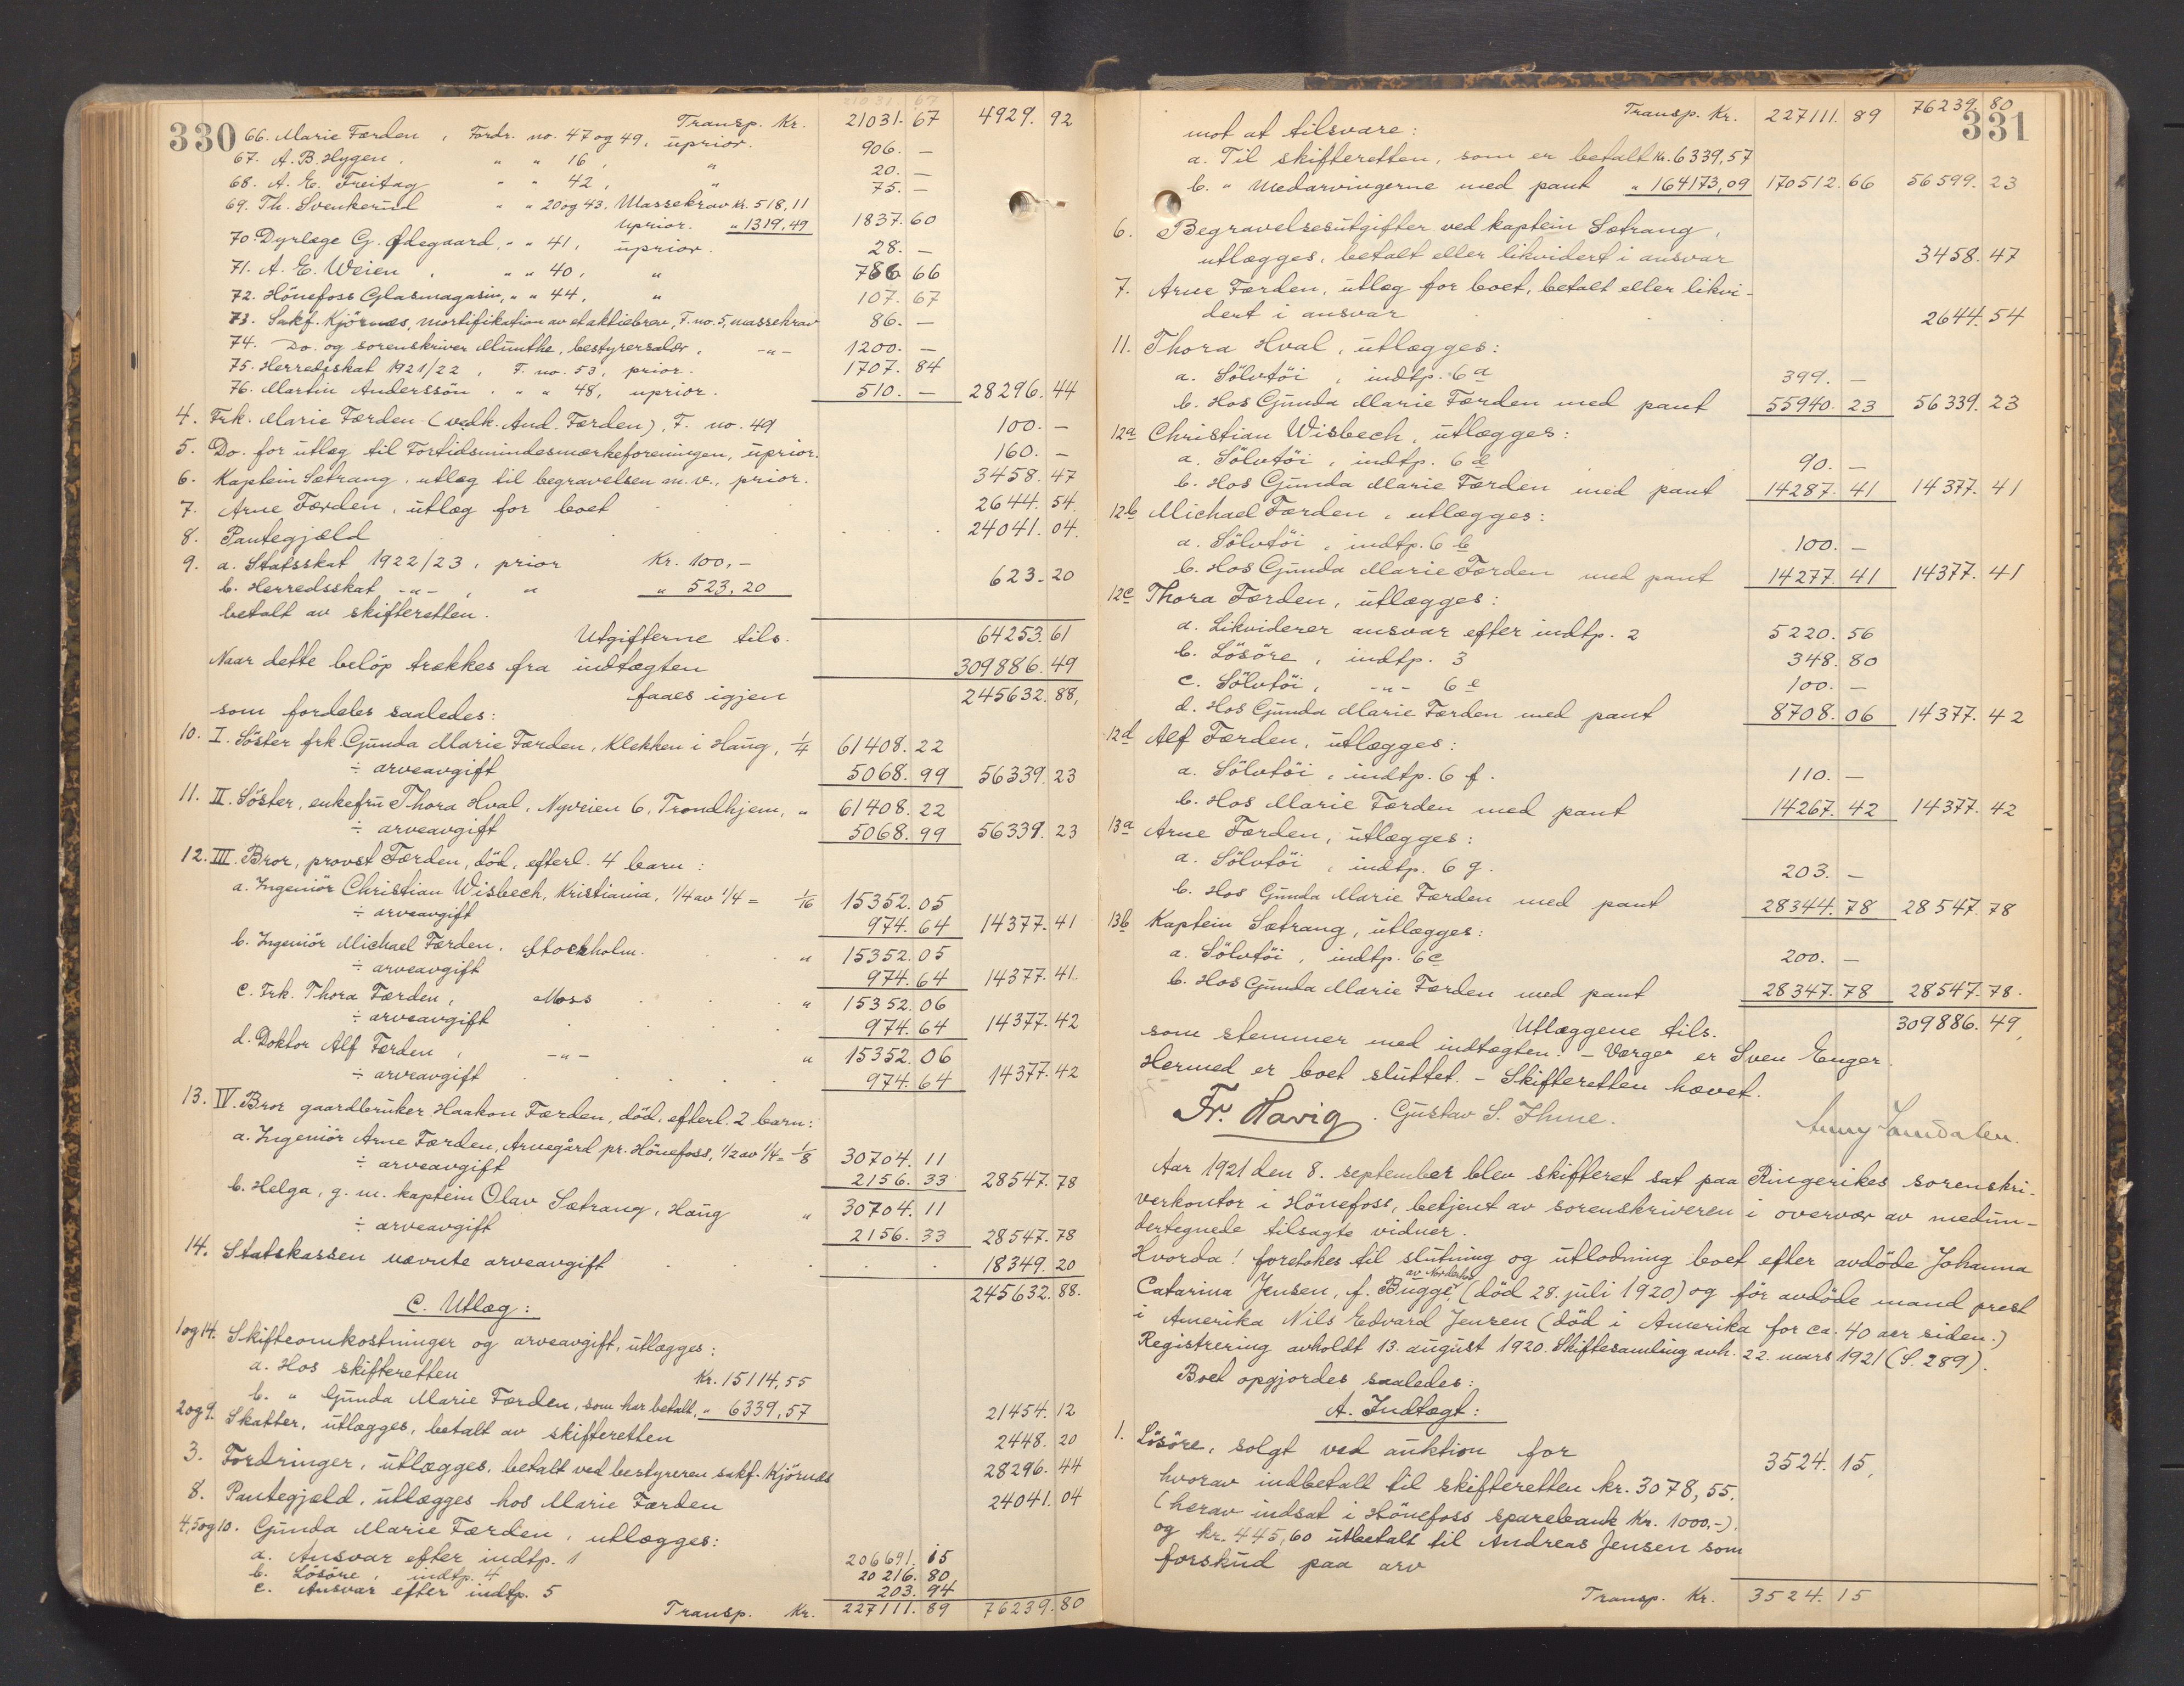 330
Transp. Kr. 21031.67 4929.92
66. Marie Færden, Fordr. no. 47 og 49, uprior. 906. —
67. A. B. Hygen, " " 16, " 20. —
68. A. E. Freitag " " 42, " 75. —
69. Th. Svenkerud " " 20 og 43. Massekrav kr. 518,11
uprior. " 1319,49 1837.60
70. Dyrlæge G. Ødegaard, " " 41, uprior. 28. —
71. A. E. Weien, " " 40, " 786 66
72. Hönefoss Glasmagasin, " " 44, " 107.67
73. Sakf. Kjörnæs, mortifikation av et aktiebrev, F. no. 5, massekrav 86. —
74. Do. og sorenskriver Munthe, bestyrersalær, -"- 1200. —
75. Herredsskat 1921/22, F. no. 53, prior. 1707.84
76. Martin Anderssön, " " 48, uprior. 510. — 28296.44
4. Frk. Marie Færden (vedk. And. Færden), F. no. 49 100. —
5. Do. for utlæg til Fortidsmindesmerkeforeningen, uprior. 160. —
6. Kaptein Sætrang, utlæg til begravelsen m. v., prior. 3458.47
7. Arne Færden, utlæg for boet 2644.54
8. Pantegjæld 24041.04
9. a. Statsskat 1922/23, prior Kr. 100,-
b. Herredsskat -"-, " " 523,20 623.20
betalt av skifteretten.
Utgifterne tils. 64253.61
Naar dette belöp trækkes fra indtægten 309886.49
faaes igjen 245632.88,
som fordeles saaledes:
10. I. Söster frk. Gunda Marie Færden, Klekken i Haug, 1/4 61408.22
÷ arveavgift 5068.99 56339.23
11. II. Söster, enkefru Thora Hval, Nyveien 6, Trondhjem, " 61408.22
÷ arveavgift 5068.99 56339.23
12. III. Bror, provst Færden, död, efterl. 4 barn:
a. Ingeniör Christian Wisbech, Kristiania, 1/4 av 1/4 = 1/16 15352.05
÷ arveavgift 974.64 14377.41
b. Ingeniör Michael Færden, Stockholm. " 15352.05
÷ arveavgift 974.64 14377.41.
c. Frk. Thora Færden, Moss " 15352.06
÷ arveavgift 974.64 14377.42
d. Doktor Alf Færden, -"- " 15352.06
÷ arveavgift 974.64 14377.42
13. IV. Bror gaardbruker Haakon Færden, död, efterl. 2 barn:
a. Ingeniör Arne Færden, Arnegård pr. Hönefoss, 1/2 av 1/4 = 1/8 30704.11
÷ arveavgift 2156.33 28547.78
b. Helga, g. m. kaptein Olav Sætrang, Haug " 30704.11
÷ arveavgift 2156.33 28547.78
14. Statskassen nævnte arveavgift 18349.20
245632.88.
C. Utlæg:
1 og 14. Skifteomkostninger og arveavgift, utlægges:
a. Hos skifteretten Kr. 15114,55
b. " Gunda Marie Færden, som har betalt, " 6339,57 21454.12
2 og 9. Skatter, utlægges, betalt av skifteretten 2448.20
3. Fordringer, utlægges, betalt ved bestyreren sakf. Kjörnæs 28296.44
8. Pantegjæld, utlægges hos Marie Færden 24041.04
4, 5 og 10. Gunda Marie Færden, utlægges:
a. Ansvar efter indtp. 1 206691.15
b. Lösöre, indtp. 4 20216.80
c. Ansvar efter indtp. 5 203.94
Transp. Kr. 227111.89 76239.80
331
Transp. Kr. 227111.89 76239.80
mot at tilsvare:
a. Til skifteretten, som er betalt Kr. 6339,57
b. " Medarvingerne med pant " 164173,09 170512.66 56599.23
6. Begravelsesutgifter ved kaptein Sætrang,
utlægges, betalt eller likvidert i ansvar 3458.47
7. Arne Færden, utlæg for boet, betalt eller likvi-
dert i ansvar 2644.54
11. Thora Hval, utlægges:
a. Sölvtöi, indtp. 6 a 399. —
b. Hos Gunda Marie Færden med pant 55940.23 56339.23
12a Christian Wisbech, utlægges:
a. Sölvtöi, indtp. 6 d 90. —
b. Hos Gunda Marie Færden med pant 14287.41 14377.41
12b Michael Færden, utlægges:
a. Sölvtöi, indtp. 6 b 100. —
b. Hos Gunda Marie Færden med pant 14277.41 14377.41
12c Thora Færden, utlægges:
a. Likviderer ansvar efter indtp. 2 5220.56
b. Lösöre, indtp. 3 348.80
c. Sölvtöi, -"- 6 e 100. —
d. Hos Gunda Marie Færden med pant 8708.06 14377.42
12d Alf Færden, utlægges:
a. Sölvtöi, indtp. 6 f. 110. —
b. Hos Marie Færden med pant 14267.42 14377.42
13a Arne Færden, utlægges:
a. Sölvtöi, indtp. 6 g. 203. —
b. Hos Gunda Marie Færden med pant 28344.78 28547.78
13b Kaptein Sætrang, utlægges:
a. Sölvtöi, indtp. 6 c 200. —
b. Hos Gunda Marie Færden med pant 28347.78 28547.78.
Utlæggene tils. 309886.49,
som stemmer med indtægten. - Værger er Sven Enger.
Hermed er boet sluttet. - Skifteretten hævet.
Fr. Havig. Gustav S. Ihme.
Aar 1921 den 8. september blev skifteret sat paa Ringerikes sorenskri-
verkontor i Hönefoss, betjent av sorenskriveren i overvær av medun-
dertegnede tilsagte vidner.
Hvorda! foretokes til slutning og utlodning boet efter avdöde Johanna
Catarina Jensen, f. Bugge, (död 28. juli 1920) og för avdöde mand prest
i Amerika Nils Edvard Jensen (död i Amerika for ca. 40 aar siden.)
Registrering avholdt 13. august 1920. Skiftesamling avh. 22. mars 1921 (S. 289).
Boet opgjordes saaledes:
A. Indtægt:
1. Lösöre, solgt ved auktion for 3524.15,
hvorav indbetalt til skifteretten kr. 3078,55.
(herav indsat i Hönefoss sparebank Kr. 1000,-).
og kr. 445,60 utbetalt til Andreas Jensen som
forskud paa arv
Transp. Kr. 3524.15